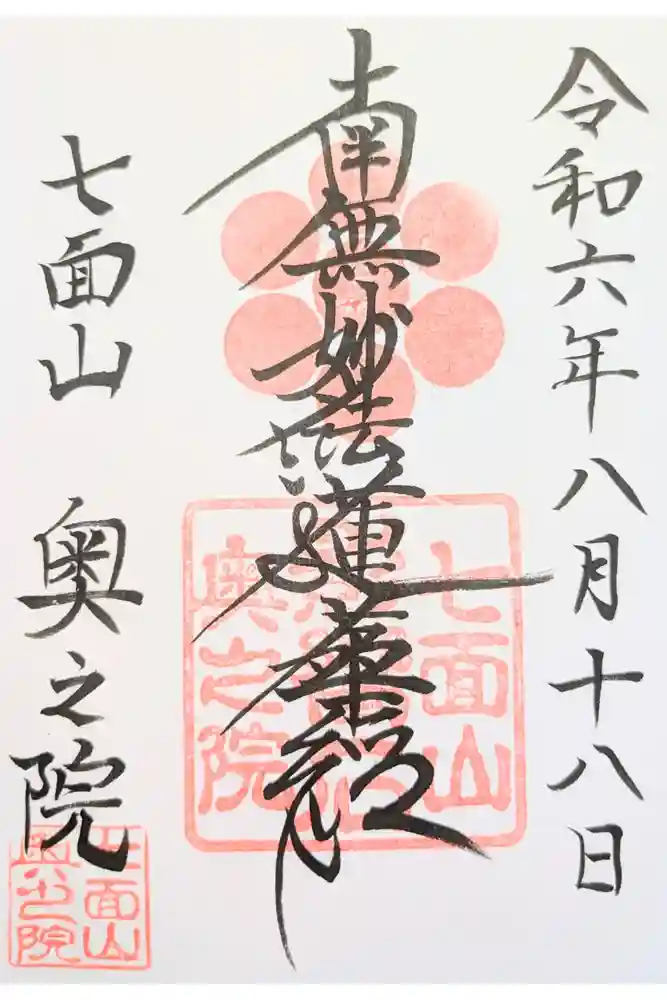 令和六年八月十八日
南無妙法蓮華経
七面山 奥之院
七面山
奥之院
七面山
奥之院